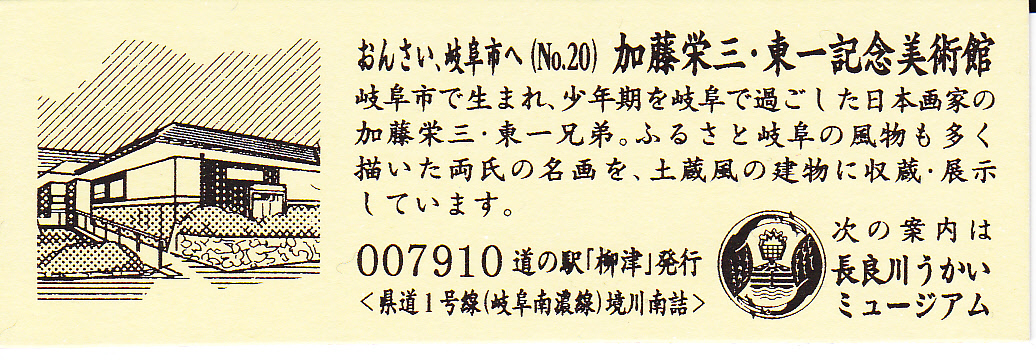 おんさい、岐阜市へ(No.20) 加藤栄三・東一記念美術館
岐阜市で生まれ、少年期を岐阜で過ごした日本画家の
加藤栄三・東一兄弟。ふるさと岐阜の風物も多く
描いた両氏の名画を、土蔵風の建物に収蔵・展示
しています。
007910 道の駅「柳津」発行
＜県道1号線(岐阜南濃線)境川南詰＞
次の案内は
長良川うかい
ミュージアム